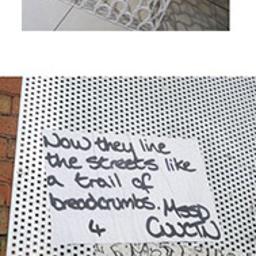 Now they line
the streets like
a trail of
breadcrumbs. MSSD
4